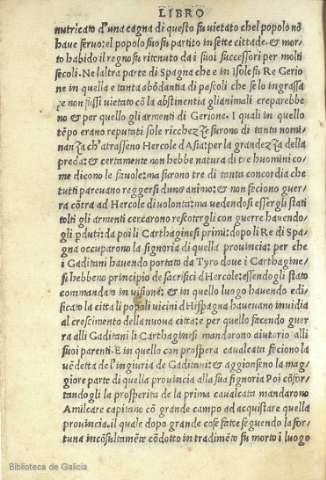 LIBRO
nutricato d'una cagna di questo fu vietato chel popolo nō
haue seruo: el popolo suo fu partito in sette cittade & mor⸗
to habido il regno fu ritenuto da i suoi successori per molti
secoli. Ne laltra parte di Spagna che e in Isole fu Re Gerio
ne in quella e tanta abōdantia di pascoli che se lo ingrassa
re non fussi vietato cō la abstinentia glianimali creparebbe
no & per quello gli armenti di Gerione, I quali in quello
tēpo erano reputati sole ricchezze furono di tanta nomi⸗
nanza ch'atrasseno Hercole d'Asia: per la grandezza della
preda: & certamente non hebbe natura di tre huomini co⸗
me dicono le fauole: ma furono tre di tanta concordia che
tutti pareuano reggersi duno animo: & non feciono guer⸗
ra cōtra ad Hercole di volonta: ma vedendosi essergli stati
tolti gli armenti cercarono rescotergli con guerre hauendo⸗
gli pduti: da poi li Carthaginesi primi: dopo li Re di Spa⸗
gna occuparono la signoria di quella prouincia: per che
i Gaditani hauendo portato da Tyro doue i Carthagine⸗
si hebbeno principio de sacrifici d'Hercole: essendogli stato
commandato in visione: & in quello luogo hauendo edi⸗
ficato la citta li popoli vicini d'Hispagna haueuano inuidia
al crescimento della nuoua citta: e per quello facendo guer
ra alli Gaditani li Carthaginesi mandarono aiutorio alli
suoi parenti. E in quello con prospera caualcata feciono la
vēdetta de l'ingiuria de Gaditani: & aggionseno la mag⸗
giore parte di quella prouincia alla sua signoria Poi cōfor⸗
tandogli la prosperita de la prima caualcata mandarono
Amilcare capitano cō grande campo ad acquistare quella
prouincia. il quale dopo grande cose fatte seguendo la for⸗
tuna incōsultamēte cōdotto in tradimēto fu morto i luogo
Biblioteca de Galicia